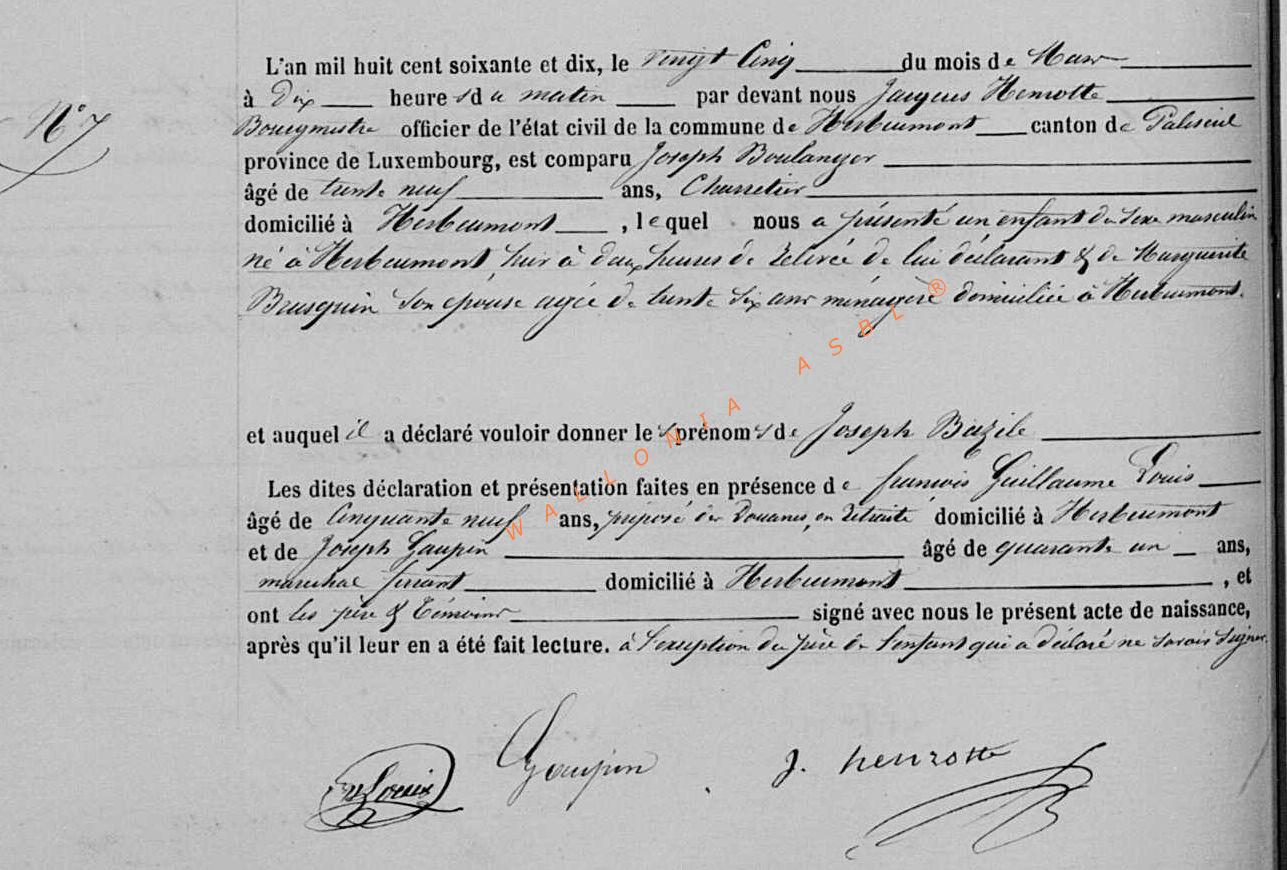 N° 7
L'an mil huit cent soixante et dix, le vingt Cinq du mois de Mars
à Dix heures du matin par devant nous Jacques Henrotte
Bourgmestre officier de l'état civil de la commune de Herbeumont canton de Paliseul
province de Luxembourg, est comparu Joseph Boulanger
âgé de trente neuf ans, Charretier
domicilié à Herbeumont, lequel nous a présenté un enfant du Sexe masculin
né à Herbeumont, hier à deux heures de relevée de lui déclarant & de Marguerite
Brusquin Son épouse agée de trente Six ans ménagère domiciliée à Herbeumont.
et auquel il a déclaré vouloir donner les prénoms de Joseph Bazile
Les dites déclaration et présentation faites en présence de françois Guillaume Louis
âgé de Cinquante neuf ans, préposé des Douanes en retraite domicilié à Herbeumont
et de Joseph Gaupin âgé de quarante un ans,
maréchal ferrant domicilié à Herbeumont, et
ont les père & témoins signé avec nous le présent acte de naissance,
après qu'il leur en a été fait lecture. à l'exception du père de l'enfant qui a déclaré ne savoir Signer.
Louis Gaupin J. henrotte
WALLONIA ASBL ®